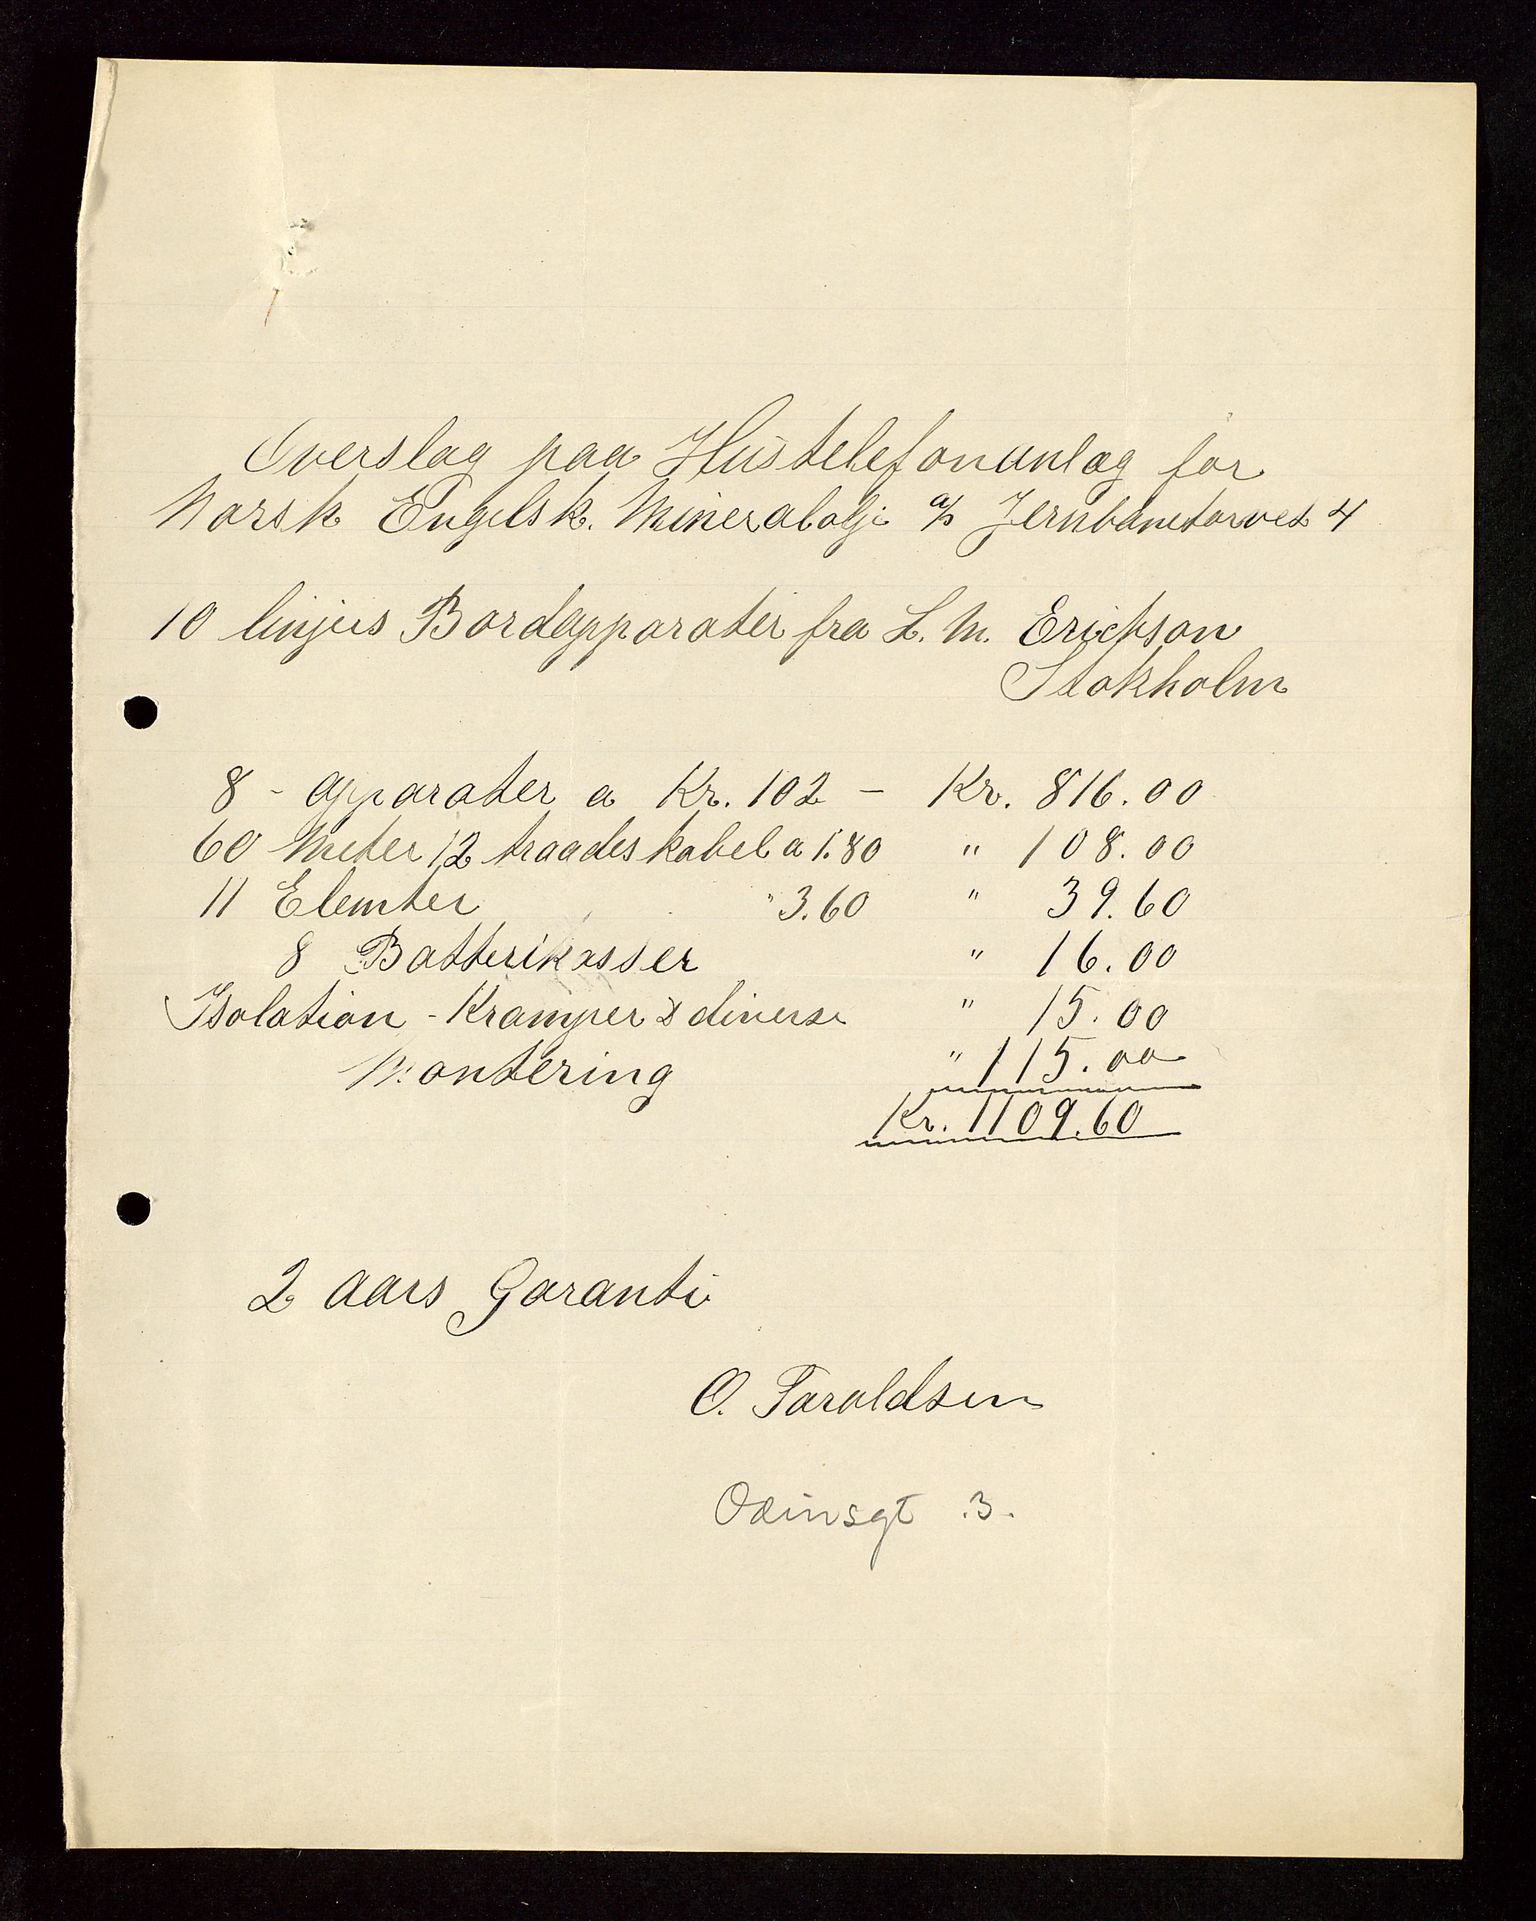 Overslag paa Hustelefonanlæg for
Norsk Engelsk. Mineralolje a/s Jernbanetorvet 4
10 linjers Bordapparater fra L. M. Erickson
Stokholm
8 - apparater a Kr. 102 - Kr. 816.00
60 Meter 12 traadeskabel a 1.80 " 108.00
11 Elemter " 3.60 " 39.60
8 Batterikasser " 16.00
Isolation - Kramper & diverse " 15.00
Montering " 115.00
Kr. 1109.60
2 aars Garanti
O. Taraldsen
Odinsgt .3.